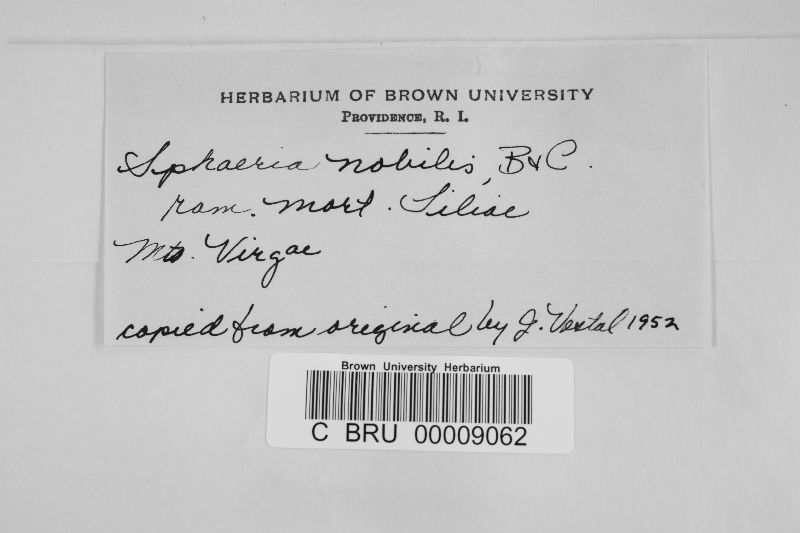 HERBARIUM OF BROWN UNIVERSITY
PROVIDENCE, R. I.
Sphaeria nobilis, B & C.
ram. mort. Tiliae
Mts. Virgae
copied from original by J. Vestal 1952
Brown University Herbarium
C BRU 00009062